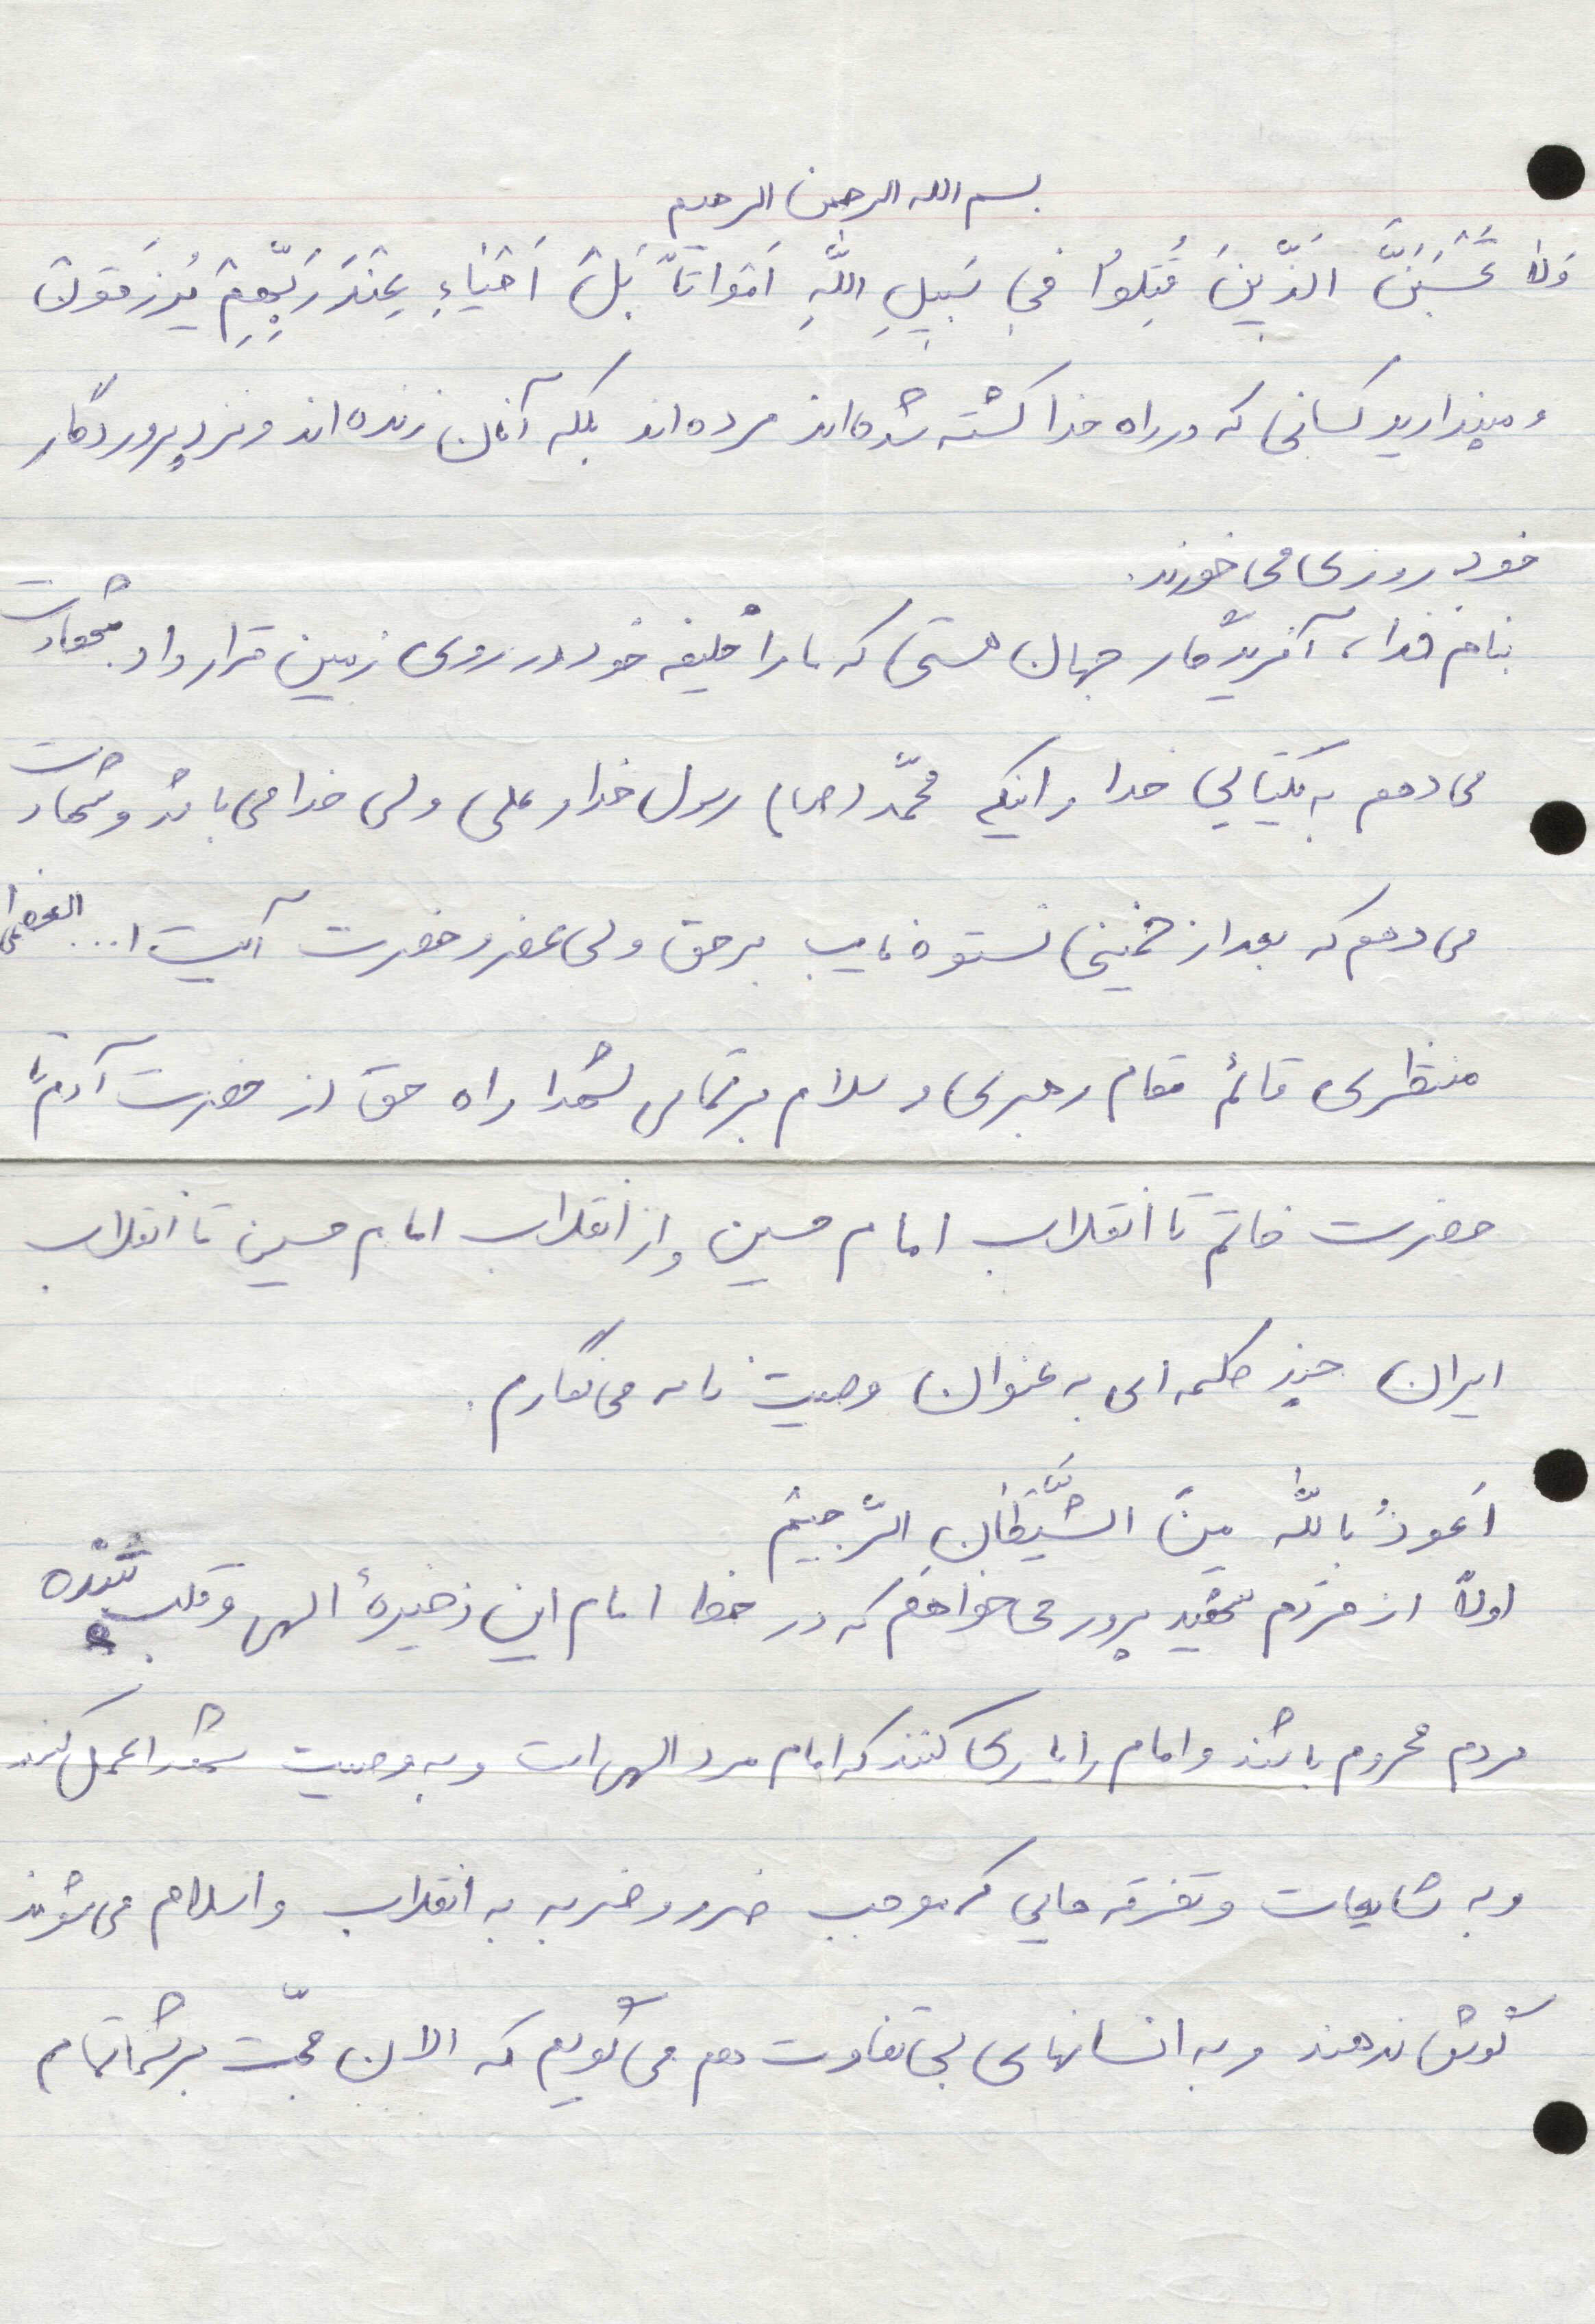 بسم الله الرحمن الرحیم
وَلا تَحْسَبَنَّ الَّذینَ قُتِلوُا فی سَبیلِ اللَّهِ اَمْواتاً بَلْ اَحْیٰاءِ عِنْدَ رَبِّهِمْ یُرْزَقونْ
و مپندارید کسانی که در راه خدا کشته شده‌اند مرده‌اند بلکه آنان زنده‌اند و نزد پروردگار
خود روزی می خورند.
بنام خدا، آفریدگار جهان هستی که ما را خلیفه خود در روی زمین قرار داد. شهادت
می دهم به یکتایی خدا و اینکه محمّد (ص) رسول خدا و علی ولی خدا می باشد و شهادت
می دهم که بعد از خمینی نستوه نایب برحق ولی عصر و حضرت آیت ا... العظمی
منتظری قائم مقام رهبری و سلام بر تمامی شهدا راه حق از حضرت آدم تا
حضرت خاتم تا انقلاب امام حسین و از انقلاب امام حسین تا انقلاب
ایران چند کلمه ای به عنوان وصیت نامه می نگارم.
اَعوذُ بِاللّٰه مِنَ الشَّیْطٰانِ الرَّجیْم
اولاً از مردم شهید پرور می خواهم که در خط امام این ذخیرهٔ الهی و قلب تپنده
مردم محروم باشند و امام را یاری کنند که امام مرد الهی است و به وصیت شهدا عمل کنند
و به شایعات و تفرقه هایی که موجب ضرر و ضربه به انقلاب و اسلام می شوند
گوش ندهند و به انسانهای بی تفاوت هم می گویم که الان حجّت بر شما تمام